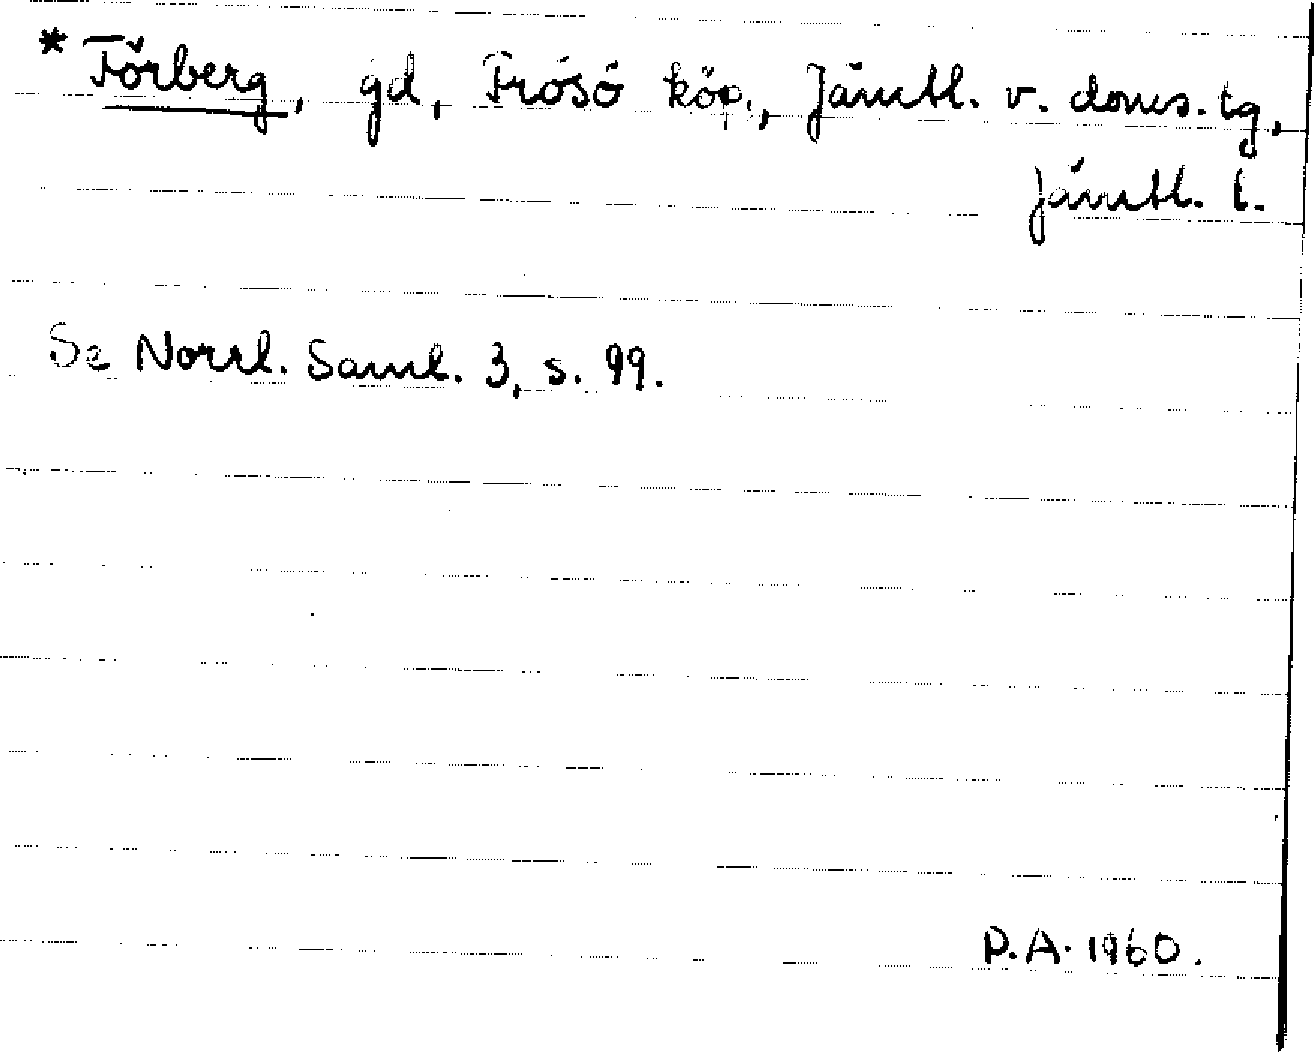 * Förberg, gd, Frösö köp., Jämtl. v. doms. tg,
Jämtl. l.
Se Norrl. Saml. 3, s. 99.
D.A. 1960.